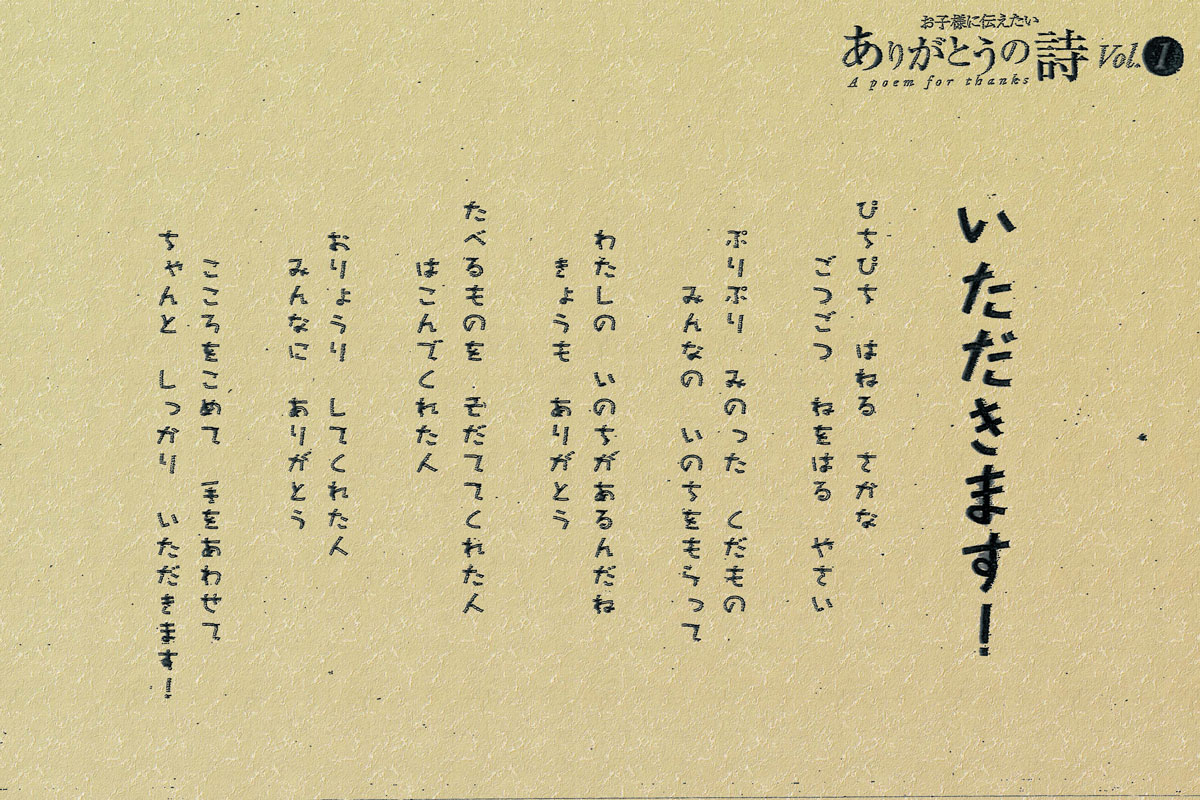 お子様に伝えたい
ありがとうの詩 Vol.1
A poem for thanks
いただきます!
ぴちぴち はねる さかな
ごつごつ ねをはる やさい
ぷりぷり みのった くだもの
みんなの いのちをもらって
わたしの いのちがあるんだね
きょうも ありがとう
たべるものを そだててくれた人
はこんでくれた人
おりょうり してくれた人
みんなに ありがとう
こころをこめて 手をあわせて
ちゃんと しっかり いただきます!